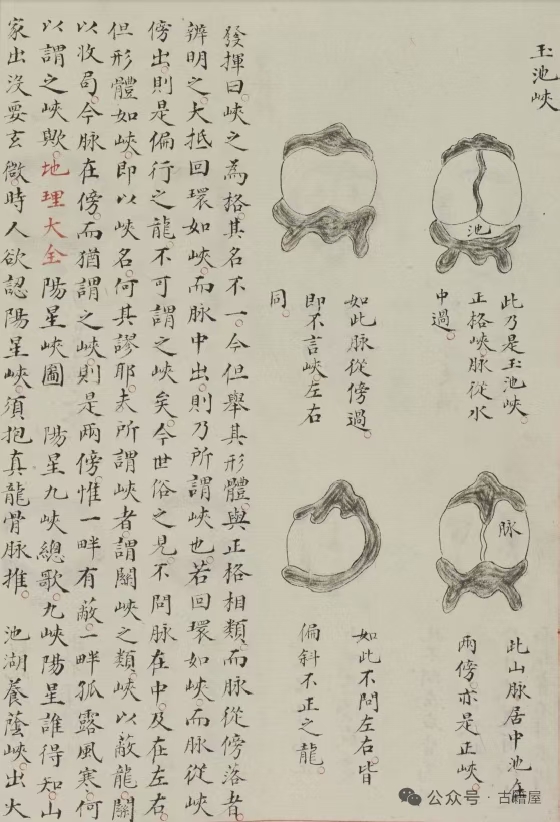 玉池峽
池
此乃是玉池峽。
正格峽。脉從水
中過。
如此脉從傍過。
即不言峽左右
同。
脉
此山脉居中池在
兩傍。亦是正峽。
如此不問左右。皆
偏斜不正之龍。
發揮曰。峽之為格。其名不一。今但舉其形體。與正格相類。而脉從傍落者。
辨明之。大抵回環如峽。而脉中出。則乃所謂峽也。若回環如峽。而脉從峽
傍出。則是偏行之龍。不可謂之峽矣。今世俗之見。不問脉在中。及在左右。
但形體如峽。即以峽名。何其謬耶。夫所謂峽者。謂關峽之類。峽以蔽龍。關
以收局。今脉在傍。而猶謂之峽。則是兩傍。惟一畔有蔽。一畔孤露風寒。何
以謂之峽歟。地理大全陽星峽圖 陽星九峽總歌。九峽陽星誰得知。山
家出沒要玄微。時人欲認陽星峽。須抱真龍骨脉推。 池湖養蔭峽。出火
公众号·古籍屋